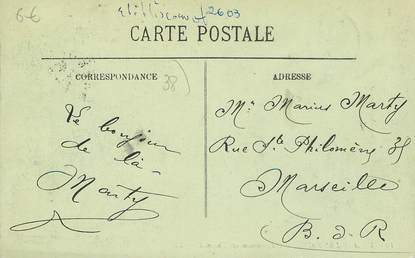 6€
2603
CARTE POSTALE
CORRESPONDANCE
38
ADRESSE
Le bonjour
de là-
Marty
Mr Marius Marty
Rue Ste Philomène 35
Marseille
B. d. R